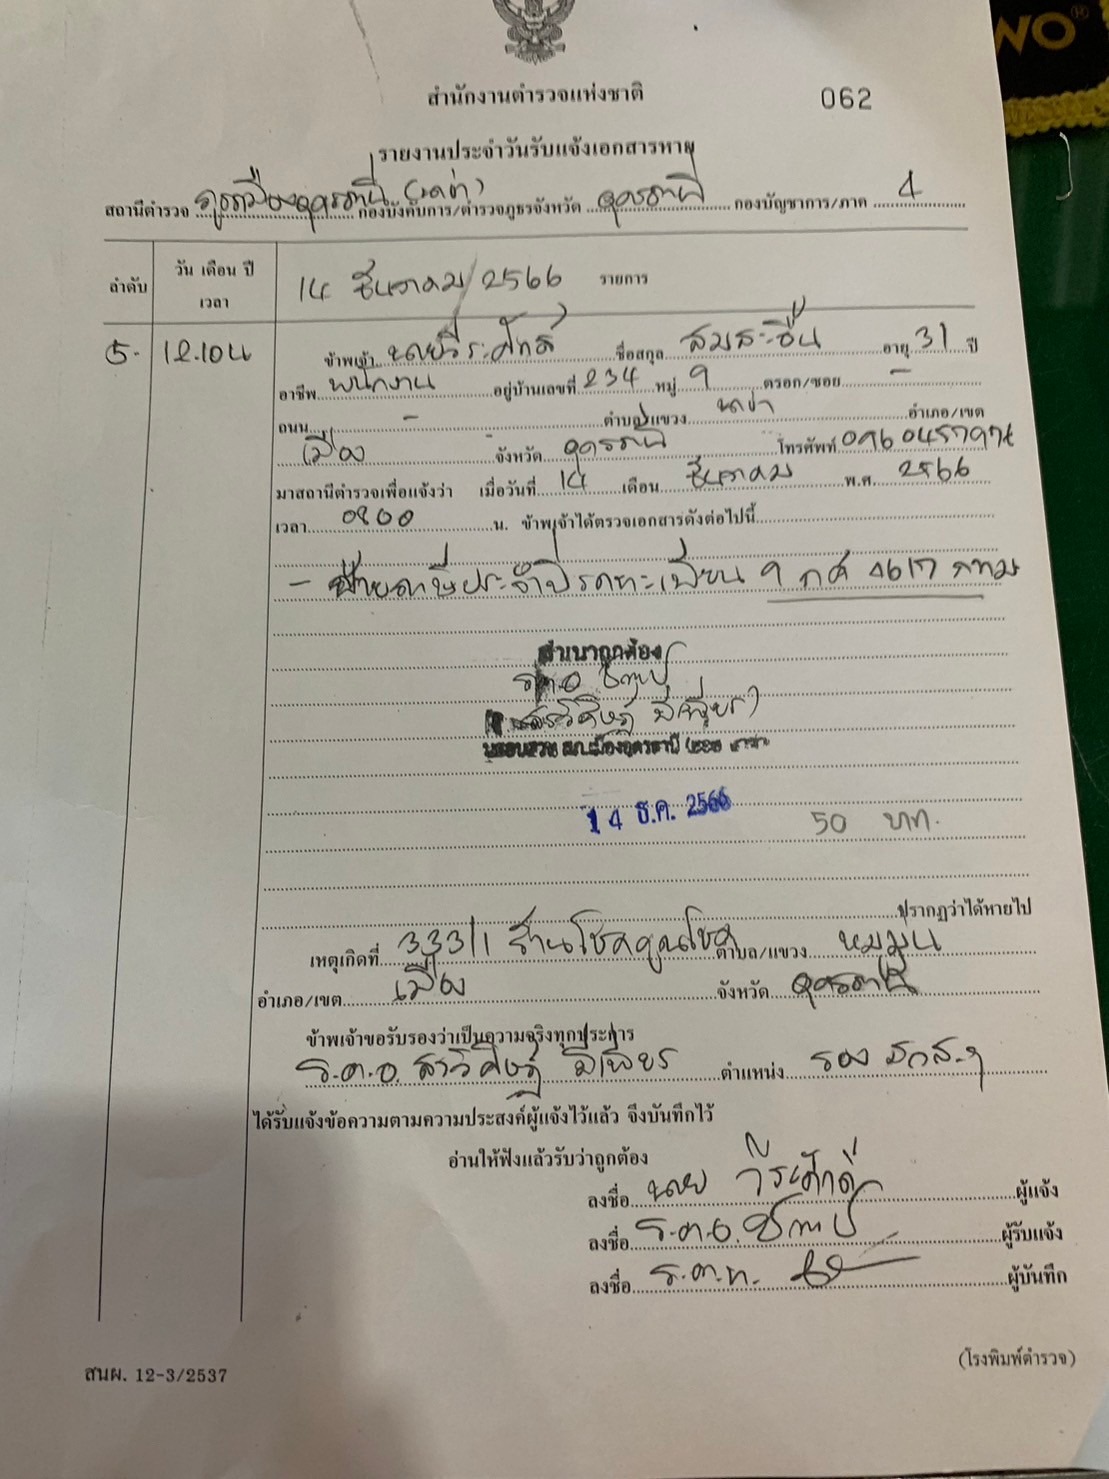 WNO®
สำนักงานตำรวจแห่งชาติ
062
รายงานประจำวันรับแจ้งเอกสารหาย
สถานีตำรวจ ภูธรเมืองอุดรธานี (นาข่า) กองบังคับการ/ตำรวจภูธรจังหวัด อุดรธานี กองบัญชาการ/ภาค 4
ลำดับ วัน เดือน ปี เวลา 14 ธันวาคม/2566 รายการ
5. 12.10น ข้าพเจ้า นายวีระศักดิ์ ชื่อสกุล อายุ 31 ปี
อาชีพ พนักงาน อยู่บ้านเลขที่ 234 หมู่ 9 ตรอก/ซอย -
ถนน - ตำบล/แขวง นาข่า อำเภอ/เขต
เมือง จังหวัด อุดรธานี โทรศัพท์
มาสถานีตำรวจเพื่อแจ้งว่า เมื่อวันที่ 14 เดือน ธันวาคม พ.ศ. 2566
เวลา 0800 น. ข้าพเจ้าได้ตรวจเอกสารดังต่อไปนี้
- ป้ายภาษีประจำปีรถทะเบียน กทม
สำเนาถูกต้อง
ร.ต.อ
14 ธ.ค. 2566
50 บาท.
ปรากฏว่าได้หายไป
เหตุเกิดที่ 333/1 ร้านโชคคูณโชค ตำบล/แขวง หมูม่น
อำเภอ/เขต เมือง จังหวัด อุดรธานี
ข้าพเจ้าขอรับรองว่าเป็นความจริงทุกประการ
ร.ต.อ. มีเพียร ตำแหน่ง รอง
ได้รับแจ้งข้อความตามความประสงค์ผู้แจ้งไว้แล้ว จึงบันทึกไว้
อ่านให้ฟังแล้วรับว่าถูกต้อง
ลงชื่อ นาย วีระศักดิ์ ผู้แจ้ง
ลงชื่อ ร.ต.อ. ผู้รับแจ้ง
ลงชื่อ ร.ต.ท. ผู้บันทึก
สนผ. 12-3/2537
(โรงพิมพ์ตำรวจ)